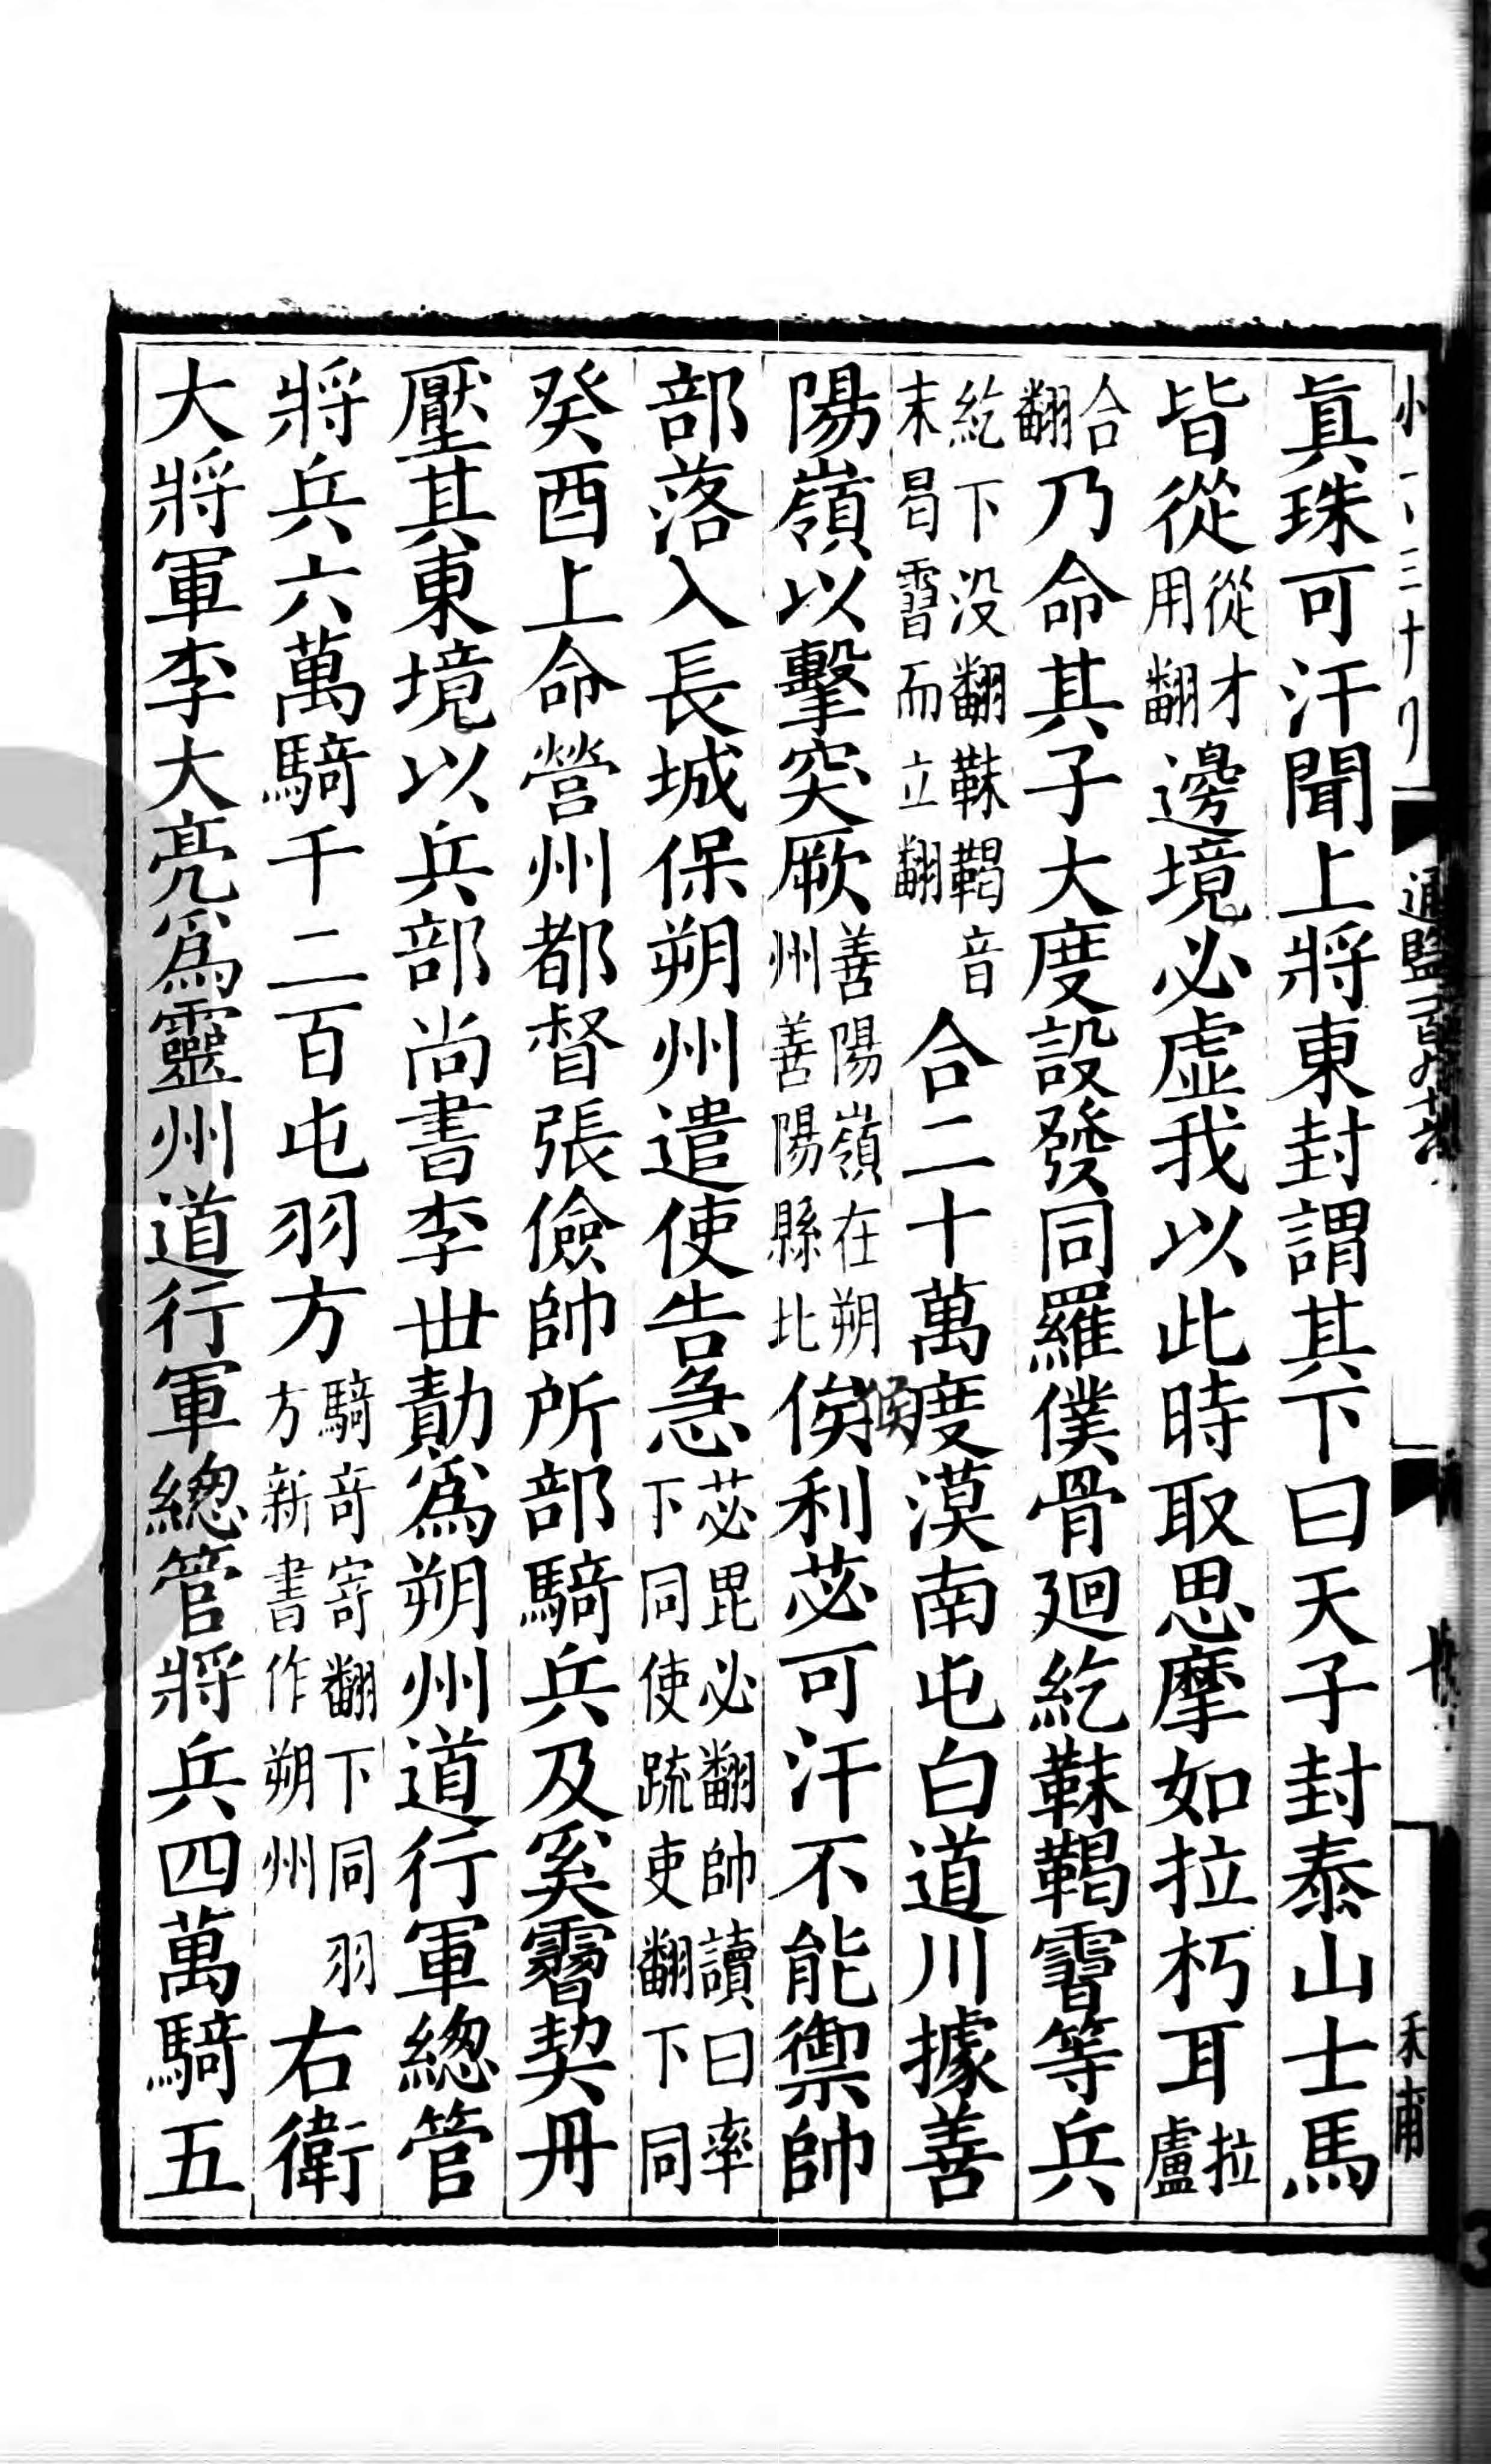 眞珠可汗聞上將東封謂其下曰天子封泰山士馬
皆從從才用翻邊境必虛我以此時取思摩如拉朽耳拉盧
合翻乃命其子大度設發同羅僕骨廻紇靺鞨霫等兵
紇下沒翻靺鞨音末曷霫而立翻合二十萬度漠南屯白道川據善
陽嶺以擊突厥善陽嶺在朔州善陽縣北俟利苾可汗不能禦帥
部落入長城保朔州遣使告急苾毘必翻帥讀曰率下同使疏吏翻下同
癸酉上命營州都督張儉帥所部騎兵及奚霫契丹
壓其東境以兵部尚書李世勣爲朔州道行軍總管
將兵六萬騎千二百屯羽方騎奇寄翻下同羽方新書作朔州右衛
大將軍李大亮爲靈州道行軍總管將兵四萬騎五